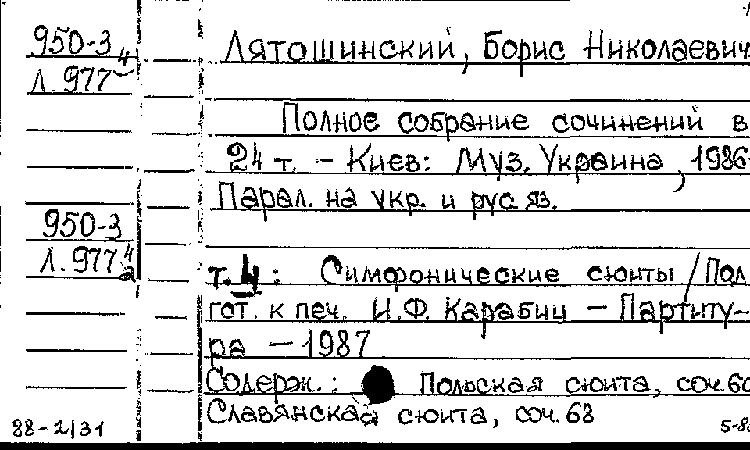 950-3
Л.977 4
Лятошинский, Борис Николаевич
Полное собрание сочинений в
24 т. – Киев: Муз. Украина, 1986
Парал. на укр. и рус яз.
950-3
Л.977 4
а
т. 4: Симфонические сюиты / Пол
гот. к печ. И.Ф. Карабиц – Партиту-
ра – 1987
Содерж.: Польская сюита, соч. 60
Славянская сюита, соч. 68
88-2/31
5-88